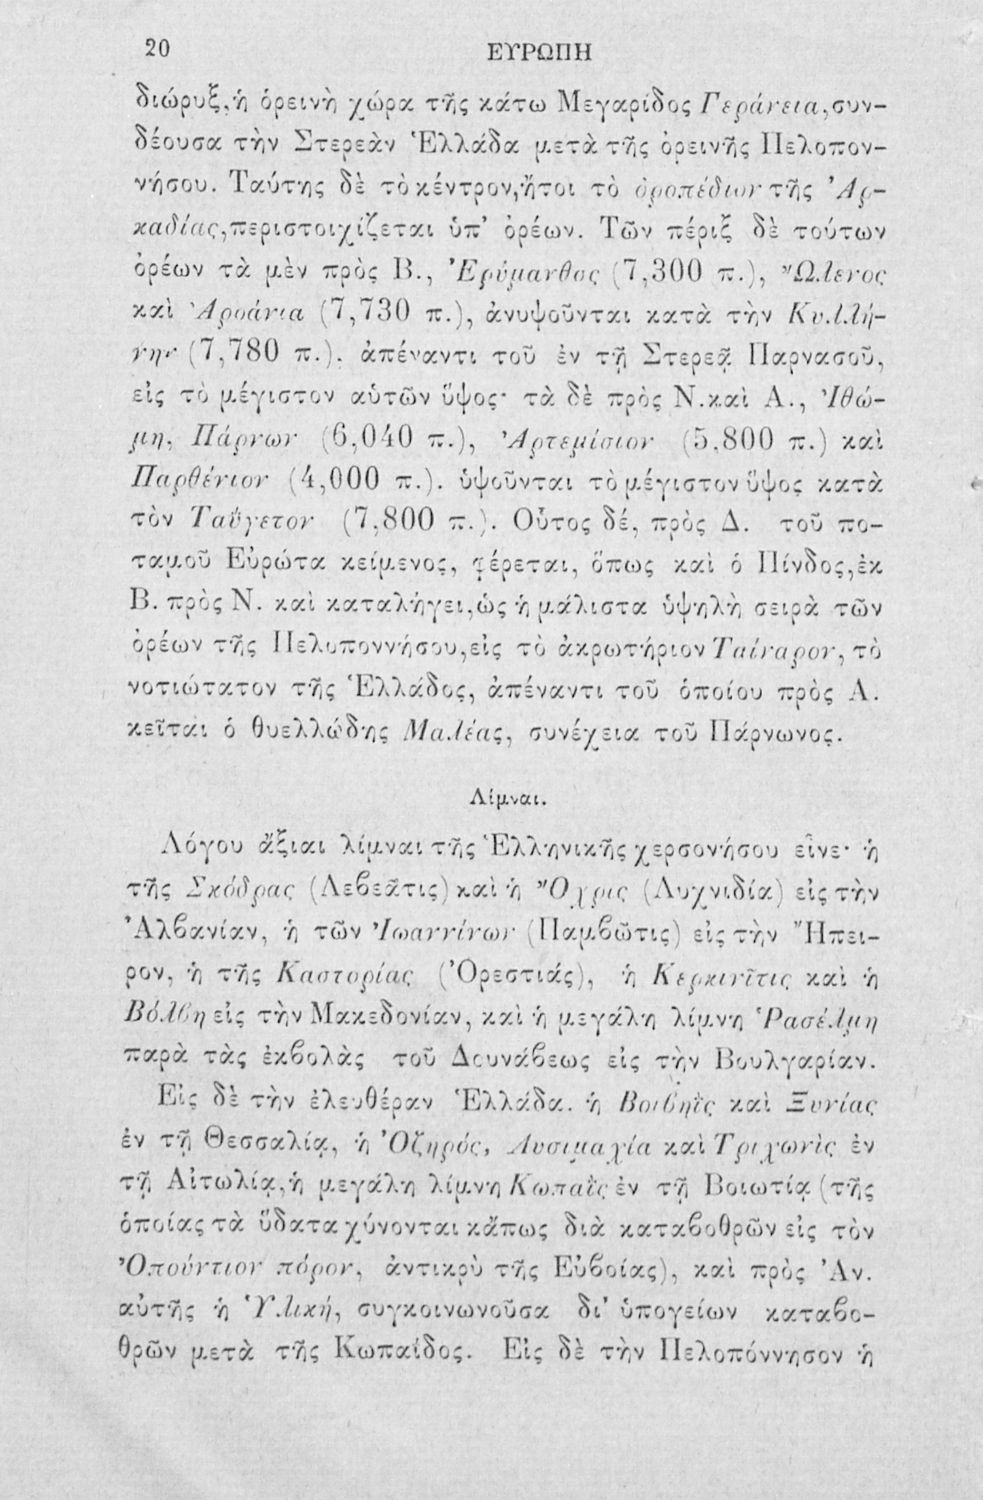 20 ΕΥΡΩΠΗ
διώρυξ, ἡ ὀρεινὴ χώρα τῆς κάτω Μεγαρίδος Γεράνεια, συν-
δέουσα τὴν Στερεὰν Ἑλλάδα μετὰ τῆς ὀρεινῆς Πελοπον-
νήσου. Ταύτης δὲ τὸ κέντρον, ἤτοι τὸ ὀροπέδιον τῆς Ἀρ-
καδίας, περιστοιχίζεται ὑπ' ὀρέων. Τῶν πέριξ δὲ τούτων
ὀρέων τὰ μὲν πρὸς Β., Ἐρύμανθος (7,300 π.), Ὤλενος
καὶ Ἀροάνια (7,730 π.), ἀνυψοῦνται κατὰ τὴν Κυλλή-
νην (7,780 π.). ἀπέναντι τοῦ ἐν τῇ Στερεᾷ Παρνασοῦ,
εἰς τὸ μέγιστον αὐτῶν ὕψος· τὰ δὲ πρὸς Ν. καὶ Α., Ἰθώ-
μη, Πάρνων (6,040 π.), Ἀρτεμίσιον (5,800 π.) καὶ
Παρθένιον (4,000 π.). ὑψοῦνται τὸ μέγιστον ὕψος κατὰ
τὸν Ταΰγετον (7,800 π.). Οὗτος δέ, πρὸς Δ. τοῦ πο-
ταμοῦ Εὐρώτα κείμενος, φέρεται, ὅπως καὶ ὁ Πίνδος, ἐκ
Β. πρὸς Ν. καὶ καταλήγει, ὡς ἡ μάλιστα ὑψηλὴ σειρὰ τῶν
ὀρέων τῆς Πελυποννήσου, εἰς τὸ ἀκρωτήριον Ταίναρον, τὸ
νοτιώτατον τῆς Ἑλλάδος, ἀπέναντι τοῦ ὁποίου πρὸς Α.
κεῖται ὁ θυελλώδης Μαλέας, συνέχεια τοῦ Πάρνωνος.
Λίμναι.
Λόγου ἄξιαι λίμναι τῆς Ἑλληνικῆς χερσονήσου εἶνε· ἡ
τῆς Σκόδρας (Λεβεᾶτις) καὶ ἡ Ὄχρις (Λυχνιδία) εἰς τὴν
Ἀλβανίαν, ἡ τῶν Ἰωαννίνων (Παμβῶτις) εἰς τὴν Ἤπει-
ρον, ἡ τῆς Καστορίας (Ὀρεστιάς), ἡ Κερκινῖτις καὶ ἡ
Βόλβη εἰς τὴν Μακεδονίαν, καὶ ἡ μεγάλη λίμνη Ῥασέλμη
παρὰ τὰς ἐκβολὰς τοῦ Δουνάβεως εἰς τὴν Βουλγαρίαν.
Εἰς δὲ τὴν ἐλευθέραν Ἑλλάδα. ἡ Βοιβηῒς καὶ Ξυνίας
ἐν τῇ Θεσσαλίᾳ, ἡ Ὀζηρός, Λυσιμαχία καὶ Τριχωνὶς ἐν
τῇ Αἰτωλίᾳ, ἡ μεγάλη λίμνη Κωπαῒς ἐν τῇ Βοιωτίᾳ (τῆς
ὁποίας τὰ ὕδατα χύνονται κἄπως διὰ καταβοθρῶν εἰς τὸν
Ὀπούντιον πόρον, ἀντικρὺ τῆς Εὐβοίας), καὶ πρὸς Ἀν.
αὐτῆς ἡ Ὑλική, συγκοινωνοῦσα δι' ὑπογείων καταβο-
θρῶν μετὰ τῆς Κωπαίδος. Εἰς δὲ τὴν Πελοπόννησον ἡ